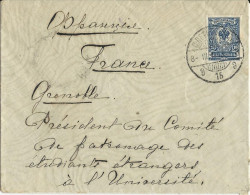 Франція
France
Grenoble
Président du Comité
de patronage des
étudiants étrangers
à l'Université.